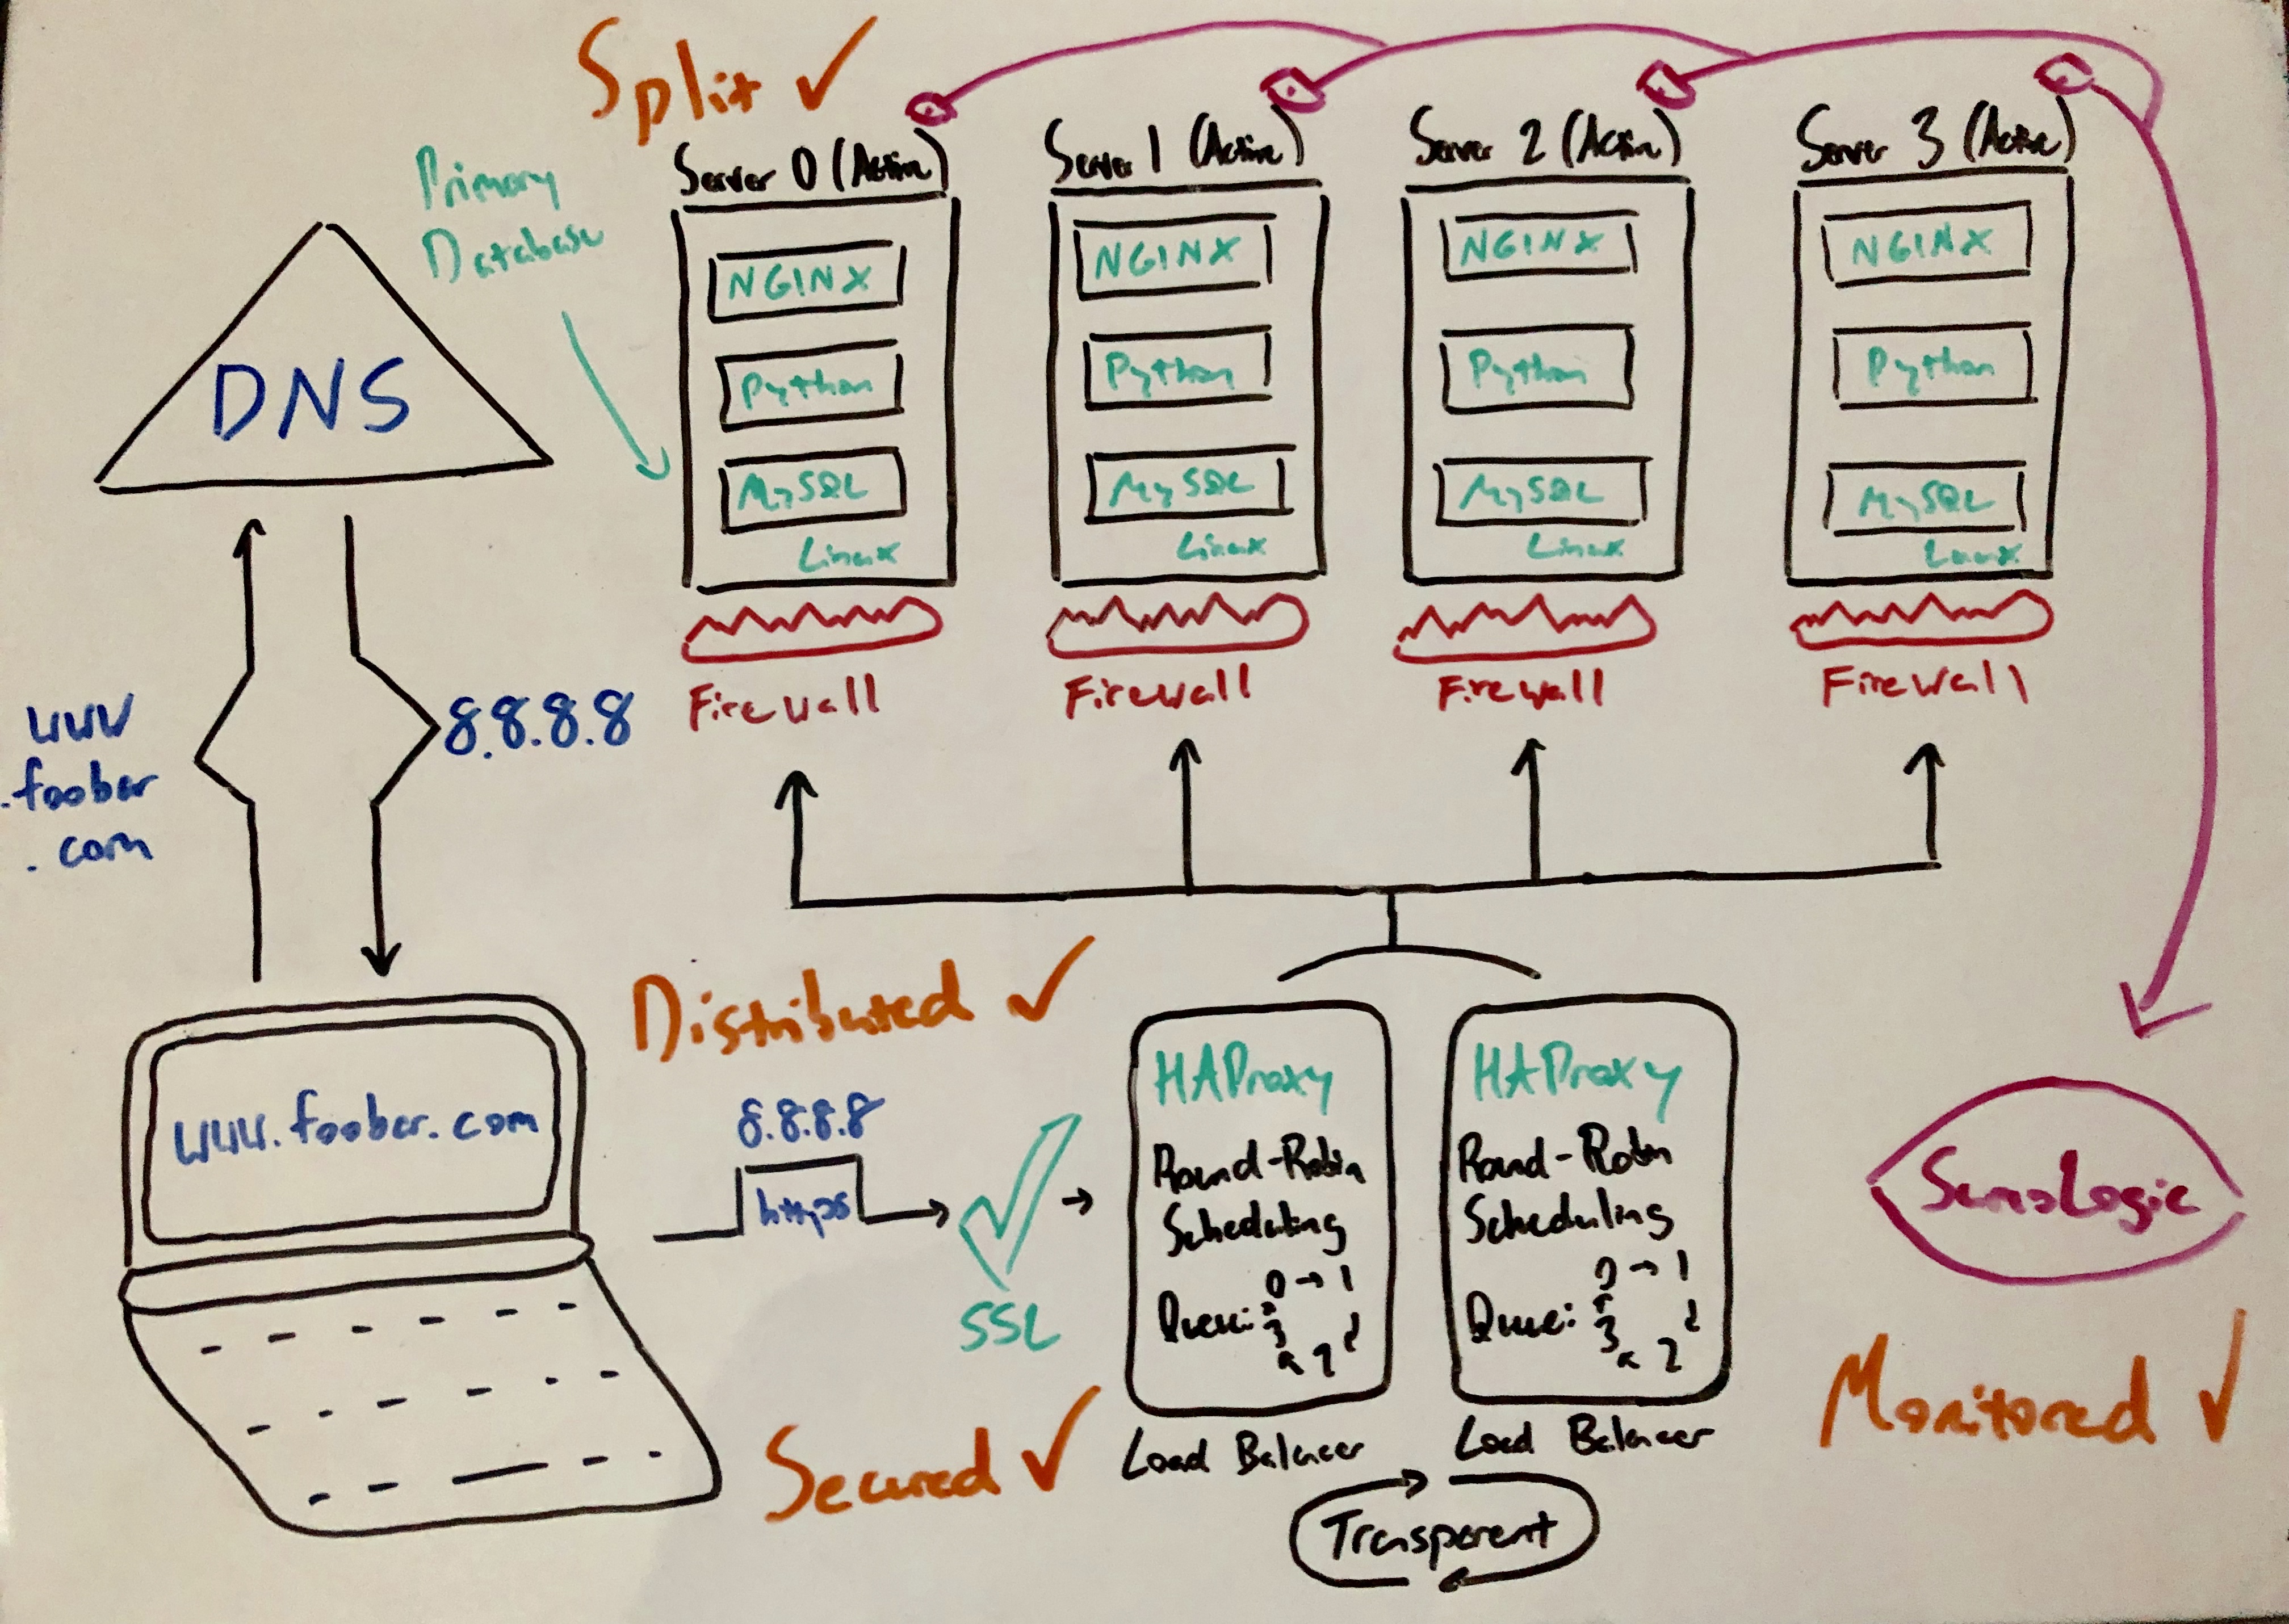 Split ✓
Primary
Database
Server 0 (Active)
NGINX
Python
MySQL
Linux
Firewall
Server 1 (Active)
NGINX
Python
MySQL
Linux
Firewall
Server 2 (Active)
NGINX
Python
MySQL
Linux
Firewall
Server 3 (Active)
NGINX
Python
MySQL
Linux
Firewall
DNS
www
.foobar
.com
8.8.8.8
www.foobar.com
Distributed ✓
8.8.8.8
https
SSL
Secured ✓
HAProxy
Round-Robin
Scheduling
Queue: 0 → 1
3
2
Load Balancer
HAProxy
Round-Robin
Scheduling
Queue: 0 → 1
3
2
Load Balancer
Transparent
SumoLogic
Monitored ✓